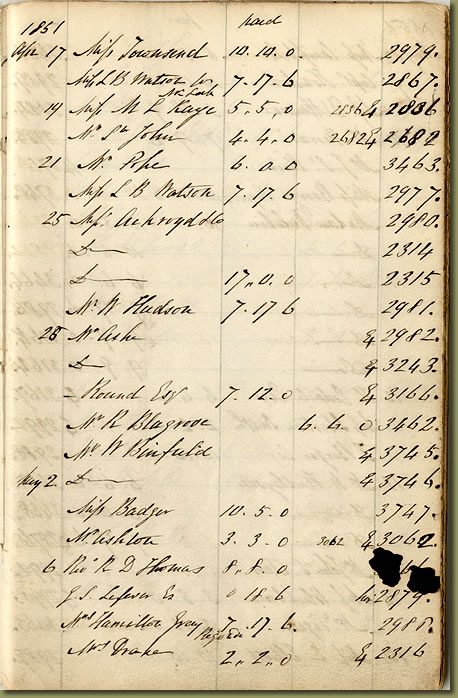 1851 paid
Apr 17 Miss Townsend 10. 10. 0 2979.
Miss L B Watson for 7. 17. 6 2867.
19 Miss M L Kaye 5.. 5.. 0 2836 & 2836
Mrs St John 4. 4. 0 2682 & 2682
21 Mr Pope 6. 0 0 3463.
Miss L B Watson 7. 17 6 2977.
25 Mess. Ackroyd & Co 2980.
Do 2314
Do 17.. 0. 0 2315
Mr W Hudson 7. 17 6 2981.
28 Mr Ashe & 2982.
Do & 3243.
- Round Esq 7. 12. 0 & 3166.
Mr R Blagrove 6. 6. 0 3462.
Mr W Binfield & 3745.
May 2 Do & 3746.
Miss Badger 10. 5. 0 3747.
Mr Ashton 3. 3. 0 3062 & 3062.
6 Revd R D Thomas 8.. 8.. 0
J. S. Lefever Es 0 18. 6 2879.
Mrs Hamilton Gray 7. 17. 6. 2988.
Mrs Drake 2.. 2.. 0 & 2316